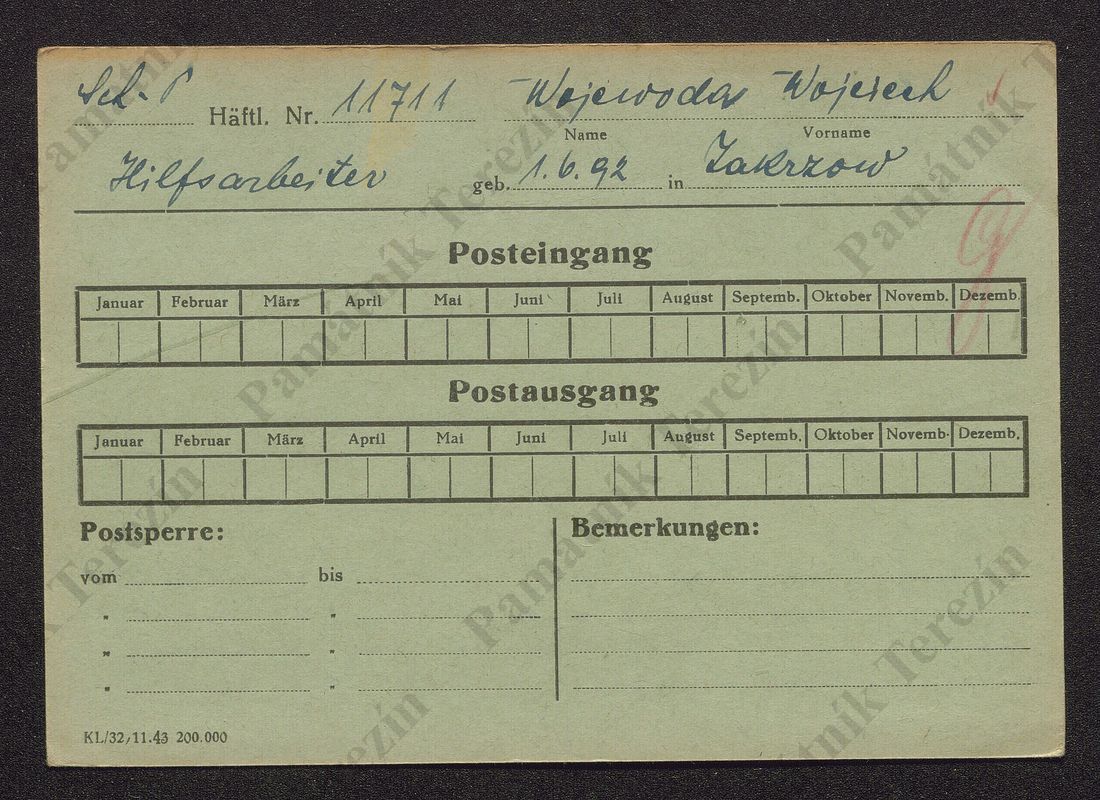 Sch.-P Häftl. Nr. 11711 Wojewoda Wojciech
Name Vorname
Hilfsarbeiter geb. 1.6.92 in Zakrzow
Posteingang
Januar Februar März April Mai Juni Juli August Septemb. Oktober Novemb. Dezemb.
Postausgang
Januar Februar März April Mai Juni Juli August Septemb. Oktober Novemb. Dezemb.
Postsperre: Bemerkungen:
vom bis
" "
" "
" "
KL/32, 11.43 200.000
Památník Terezín